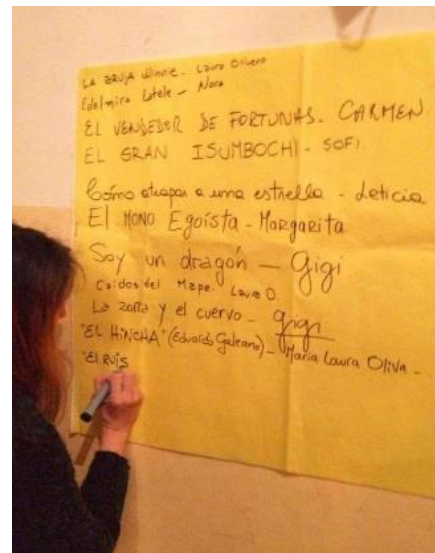 LA BRUJA Winnie - Laura Olivero
Edelmira Lotele - Nora
EL VENDEDOR DE FORTUNAS - CARMEN
EL GRAN ISUMBOCHI - SOFI
Cómo atrapar a una estrella - Leticia
El MONO EgoístA - MARGARITA
Soy un dragón - Gigi
Caídos del Mapa. Laura O.
La zorra y el cuervo - gigi
"EL HINCHA" (Eduardo Galeano) - María Laura Oliva -
"El RUIS